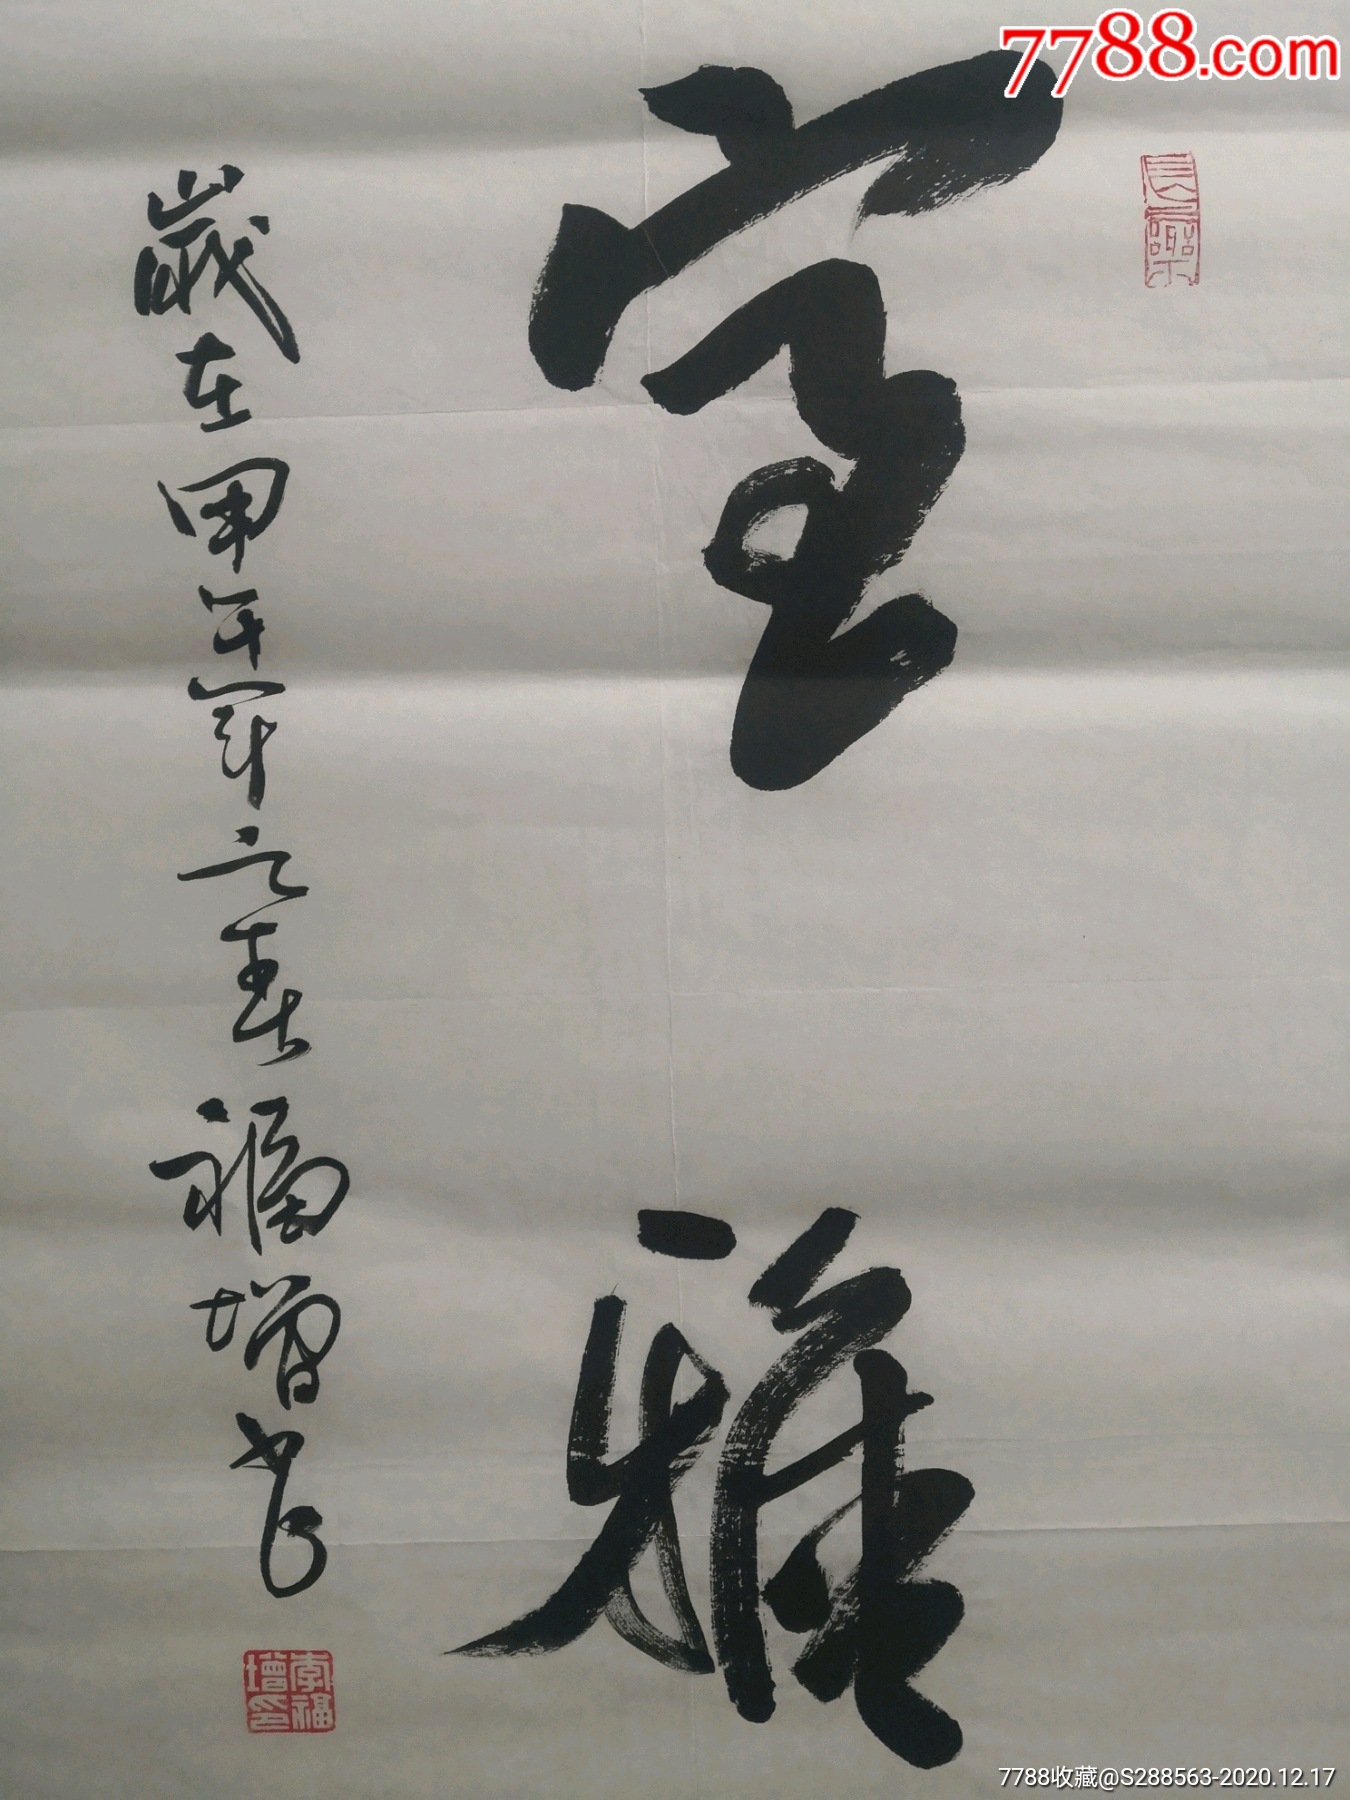 7788.com
長樂
室雅
歲在甲午年之春福增書
李福增印
7788收藏@S288563-2020.12.17